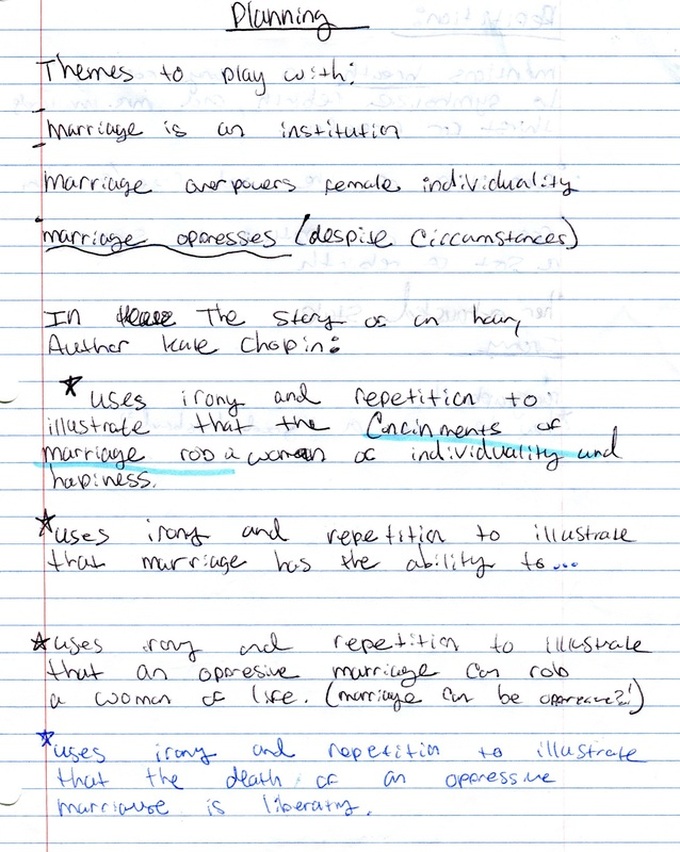 Planning
Themes to play with:
- marriage is an institution
- marriage overpowers female individuality
- marriage oppresses (despite Ciccumstances)
In The Story of an hour,
Author Kate Chopin:
* uses irony and repetition to
illustrate that the Concinments of
marriage rob a woman of individuality and
hapiness.
* uses irony and repetition to illustrate
that marriage has the ability to...
* uses irony and repetition to illustrate
that an oppresive marriage can rob
a woman of life. (marriage can be oppresive?!)
* uses irony and repetition to illustrate
that the death of an oppressive
marriause is liberatng.